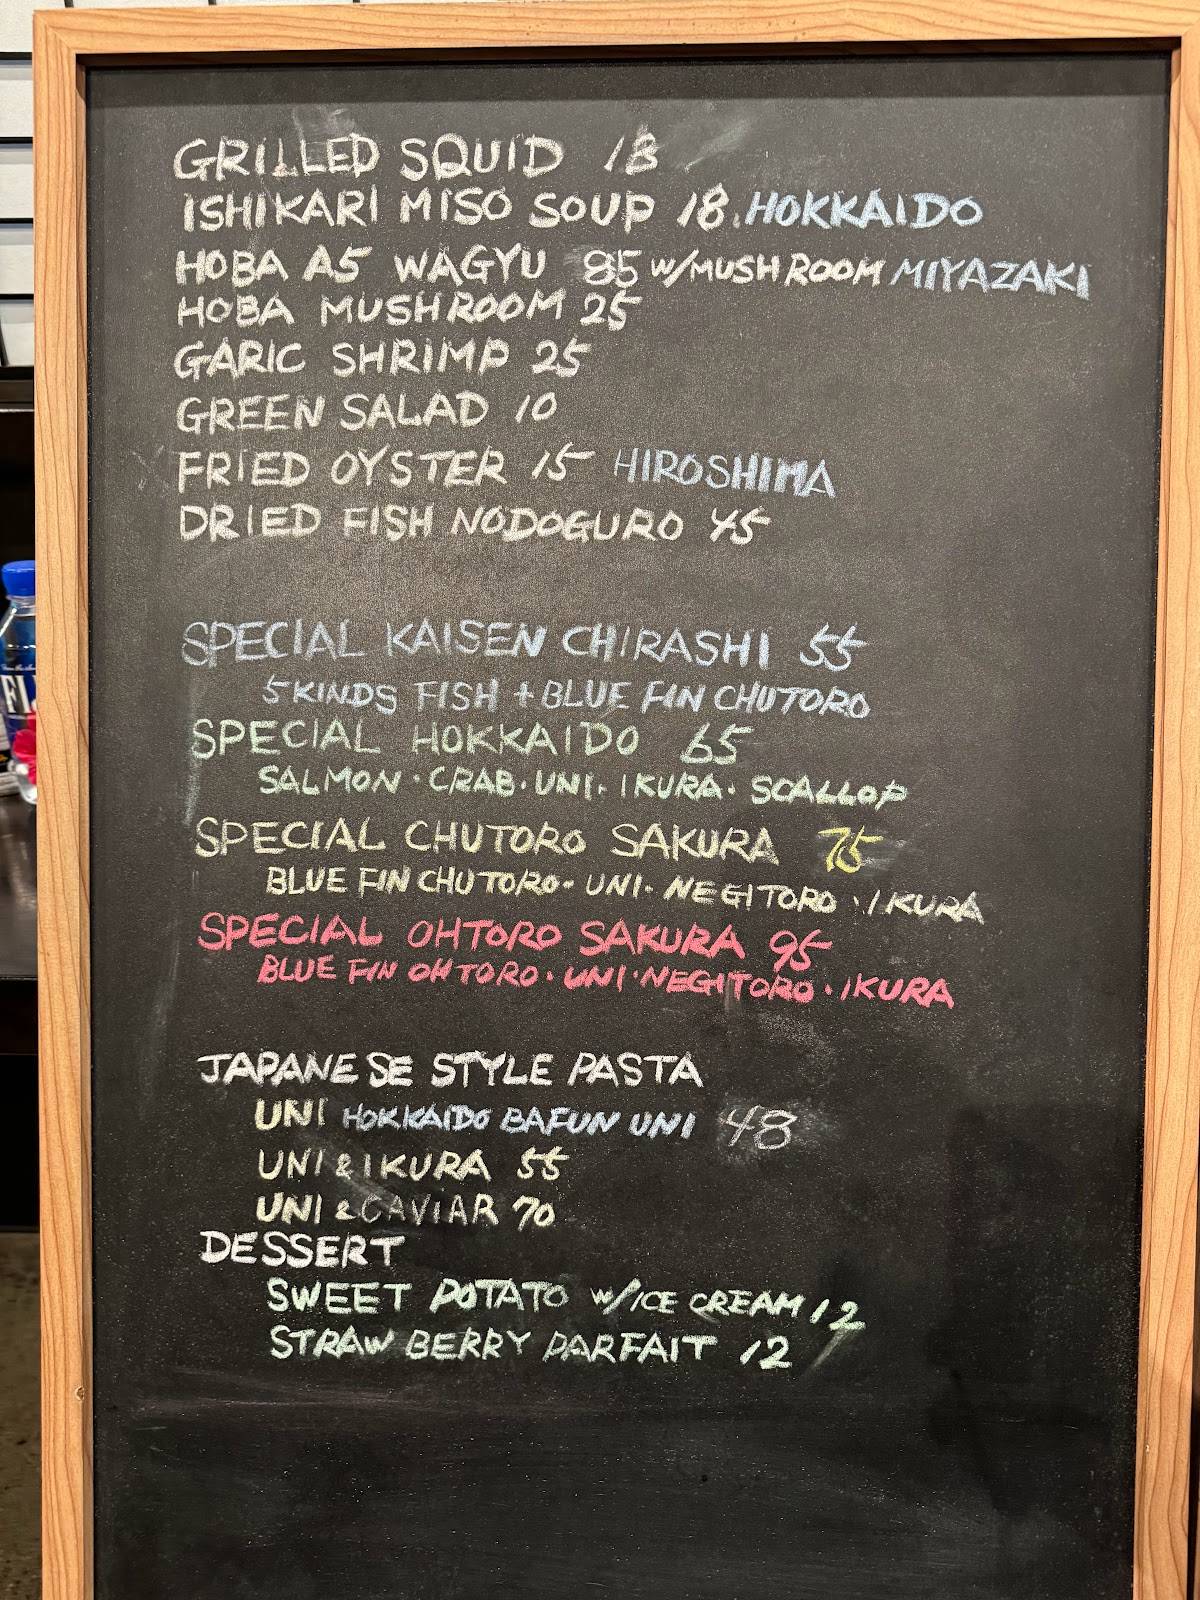 GRILLED SQUID 18
ISHIKARI MISO SOUP 18. HOKKAIDO
HOBA A5 WAGYU 85 W/MUSHROOM MIYAZAKI
HOBA MUSHROOM 25
GARIC SHRIMP 25
GREEN SALAD 10
FRIED OYSTER 15 HIROSHIMA
DRIED FISH NODOGURO 45
SPECIAL KAISEN CHIRASHI 55
5 KINDS FISH + BLUE FIN CHUTORO
SPECIAL HOKKAIDO 65
SALMON · CRAB · UNI · IKURA · SCALLOP
SPECIAL CHUTORO SAKURA 75
BLUE FIN CHUTORO · UNI · NEGITORO · IKURA
SPECIAL OHTORO SAKURA 95
BLUE FIN OHTORO · UNI · NEGITORO · IKURA
JAPANESE STYLE PASTA
UNI HOKKAIDO BAFUN UNI 48
UNI & IKURA 55
UNI & CAVIAR 70
DESSERT
SWEET POTATO W/ICE CREAM 12
STRAWBERRY PARFAIT 12